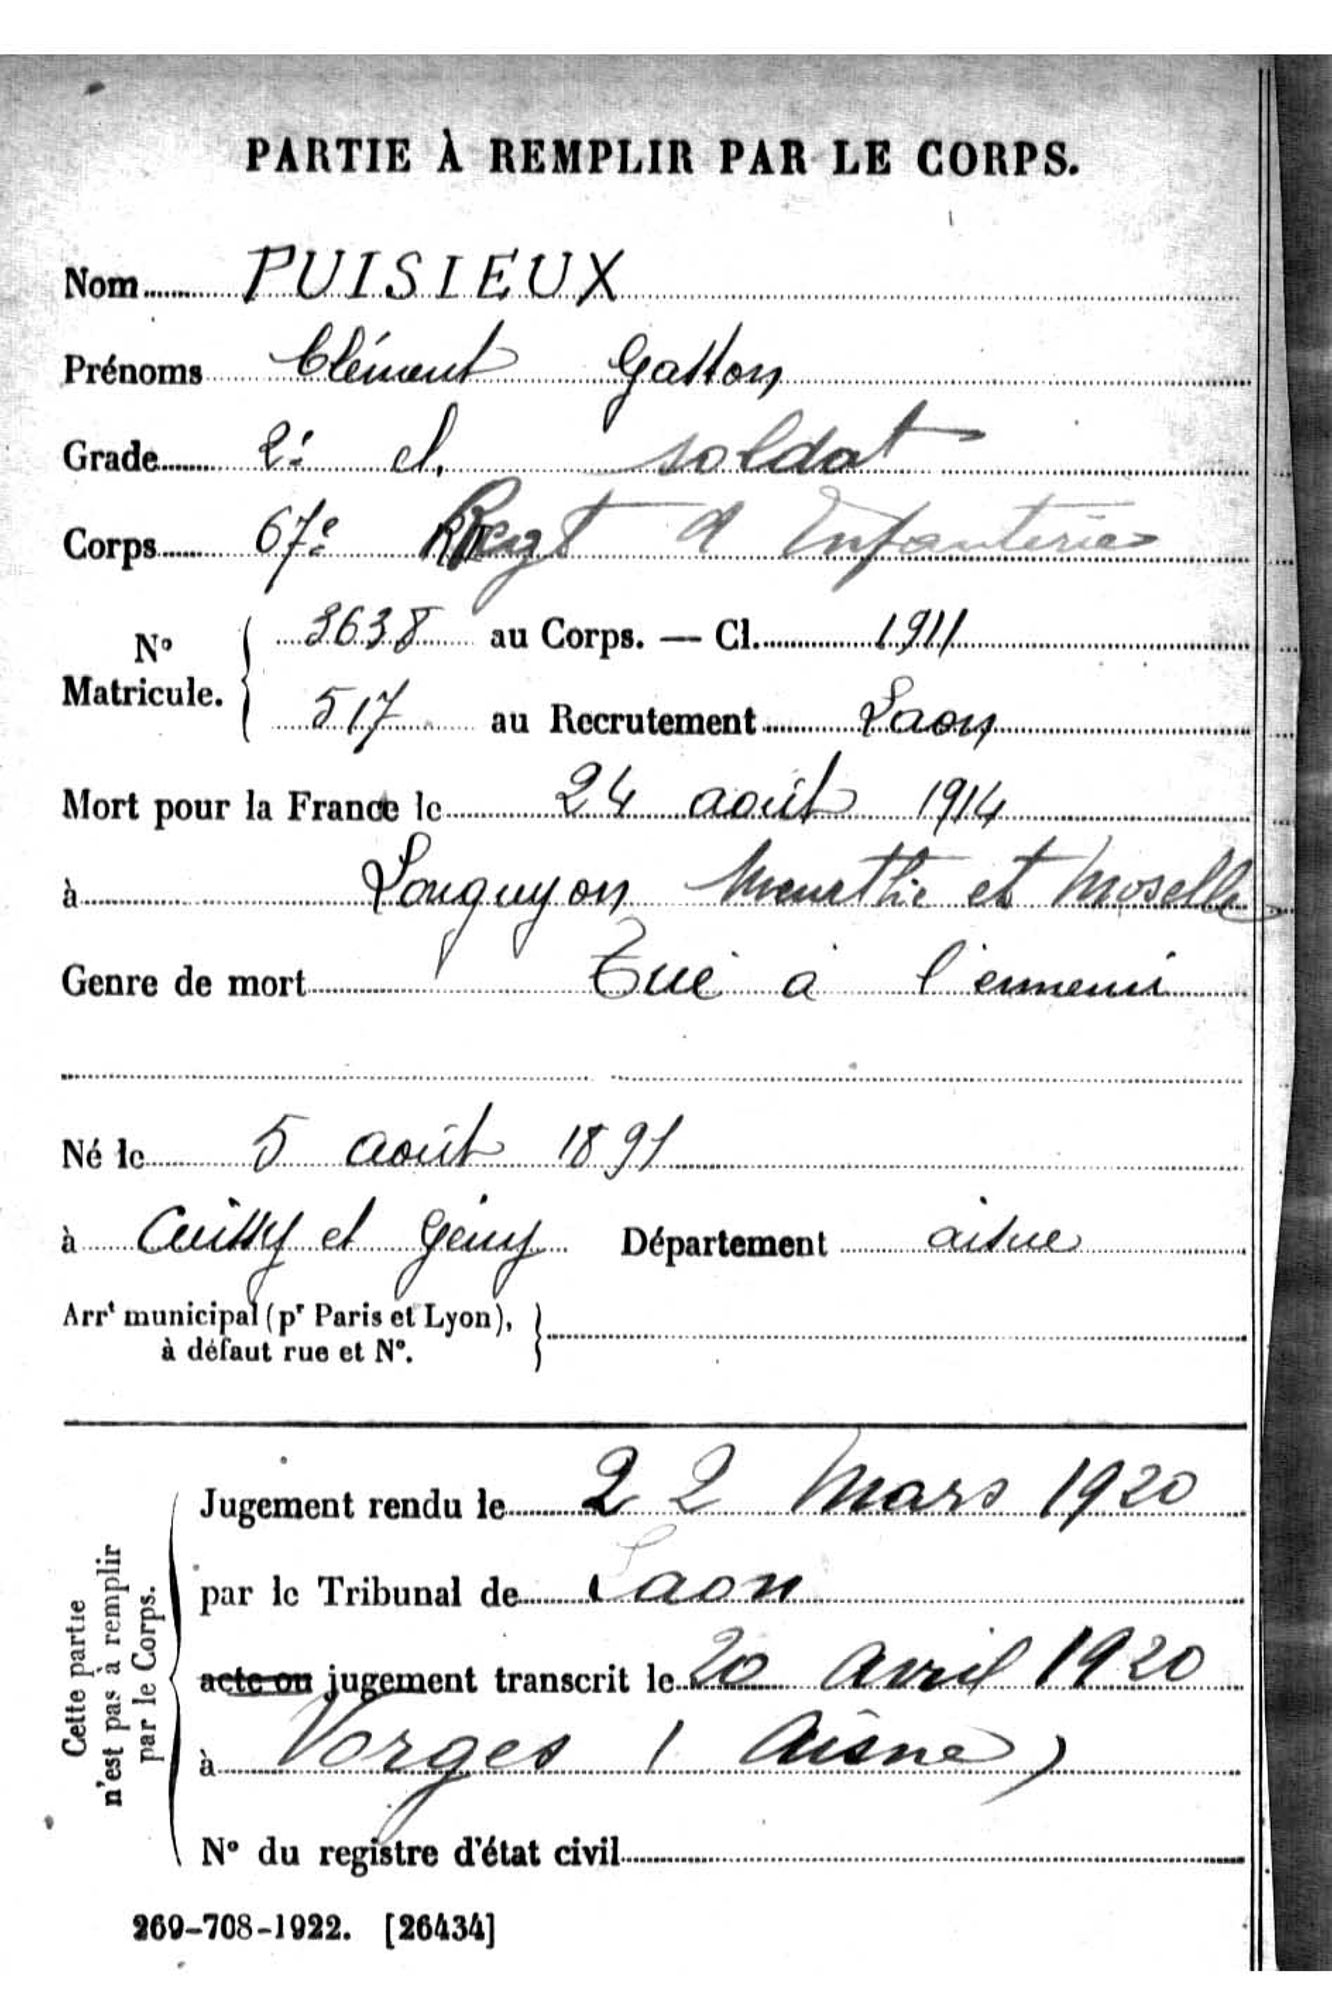 PARTIE À REMPLIR PAR LE CORPS.
Nom PUISIEUX
Prénoms Clément Gaston
Grade 2e cl. soldat
Corps 67e Regt d'Infanterie
No Matricule. 3638 au Corps. — Cl. 1911
517 au Recrutement Laon
Mort pour la France le 24 août 1914
à Longuyon Meurthe et Moselle
Genre de mort Tué à l'ennemi
Né le 5 août 1891
à Cuissy et Geny Département aisne
Arrt municipal (pr Paris et Lyon),
à défaut rue et No.
Cette partie
n'est pas à remplir
par le Corps.
Jugement rendu le 22 Mars 1920
par le Tribunal de Laon
acte ou jugement transcrit le 20 Avril 1920
à Vorges (Aisne)
No du registre d'état civil
269-708-1922. [26434]